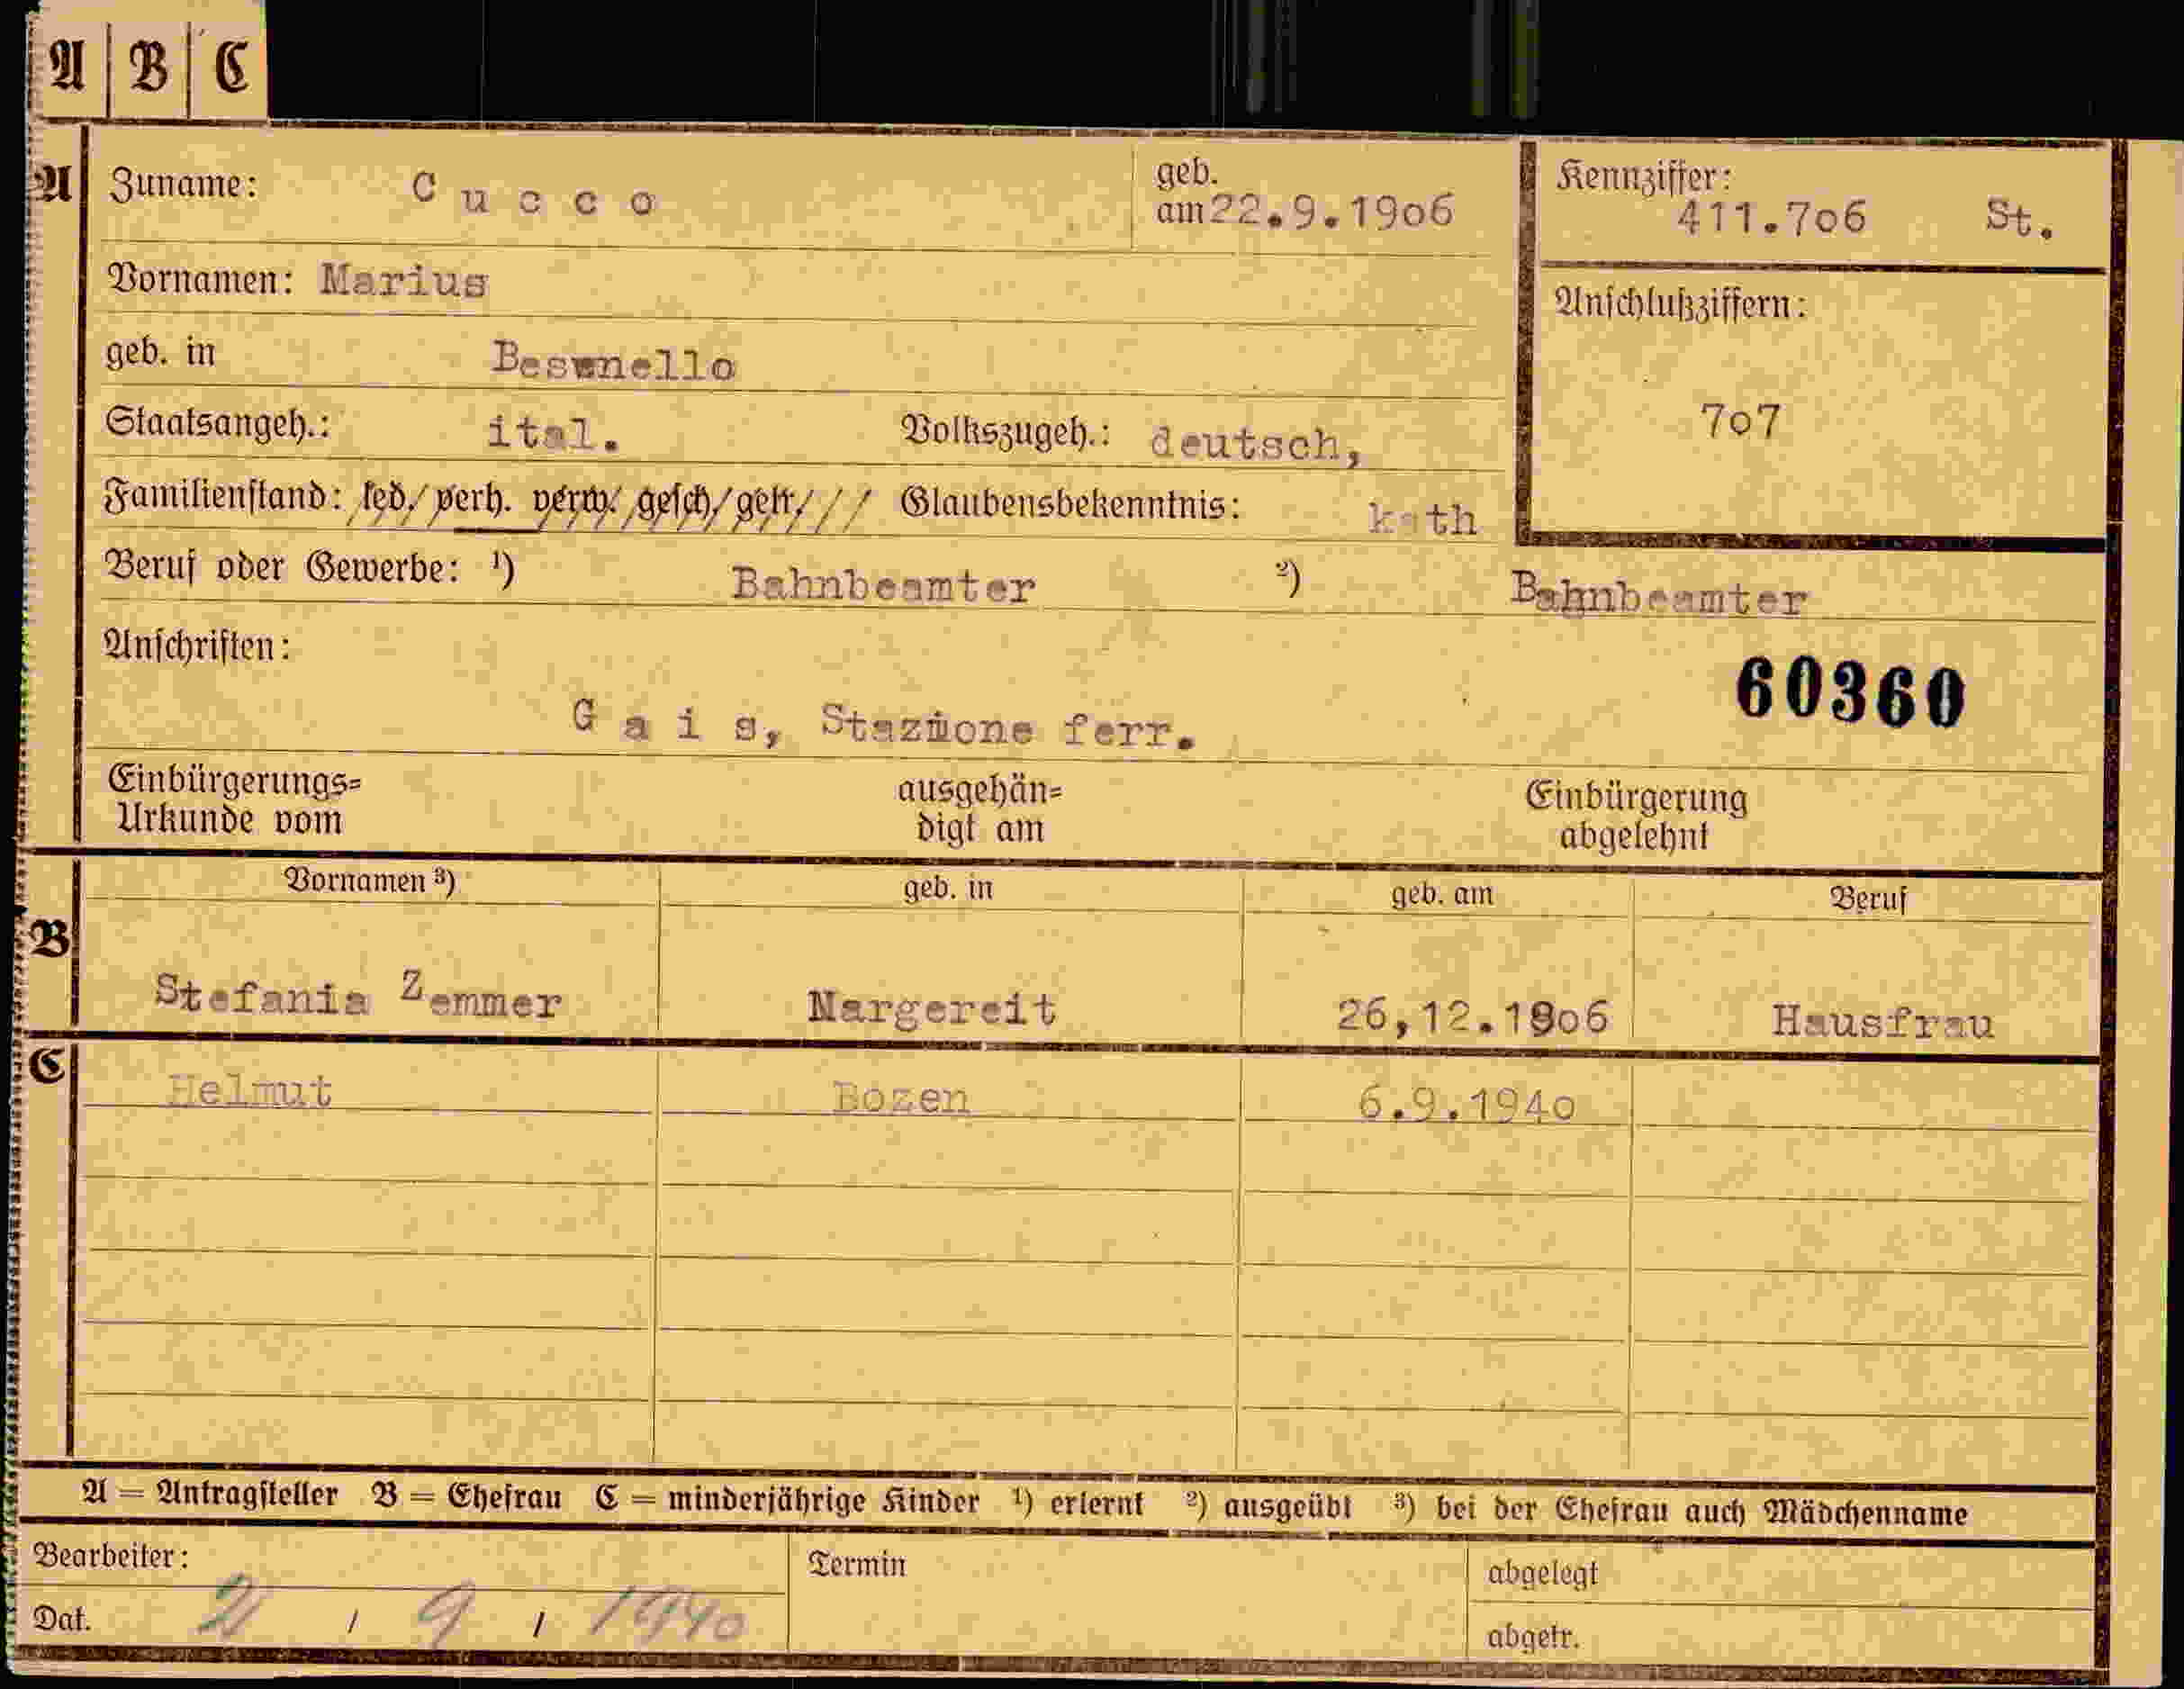 A B C
A Zuname: Cucco geb. am 22.9.19o6 Kennziffer: 411.7o6 St.
Vornamen: Marius
Anschlußziffern:
geb. in Besenello
7o7
Staatsangeh.: ital. Volkszugeh.: deutsch,
Familienstand: led./ verh. verw./ gesch/ getr./// Glaubensbekenntnis: kath
Beruf oder Gewerbe: ¹) Bahnbeamter ²) Bahnbeamter
Anschriften:
60360
Gais, Stazione ferr.
Einbürgerungs= ausgehän= Einbürgerung
Urkunde vom digt am abgelehnt
Vornamen ³) geb. in geb. am Beruf
B
Stefania Zemmer Nargereit 26,12.19o6 Hausfrau
C
Helmut Bozen 6.9.194o
A = Antragsteller B = Ehefrau C = minderjährige Kinder ¹) erlernt ²) ausgeübt ³) bei der Ehefrau auch Mädchenname
Bearbeiter: Termin abgelegt
Dat. / 9 / 1940 abgetr.